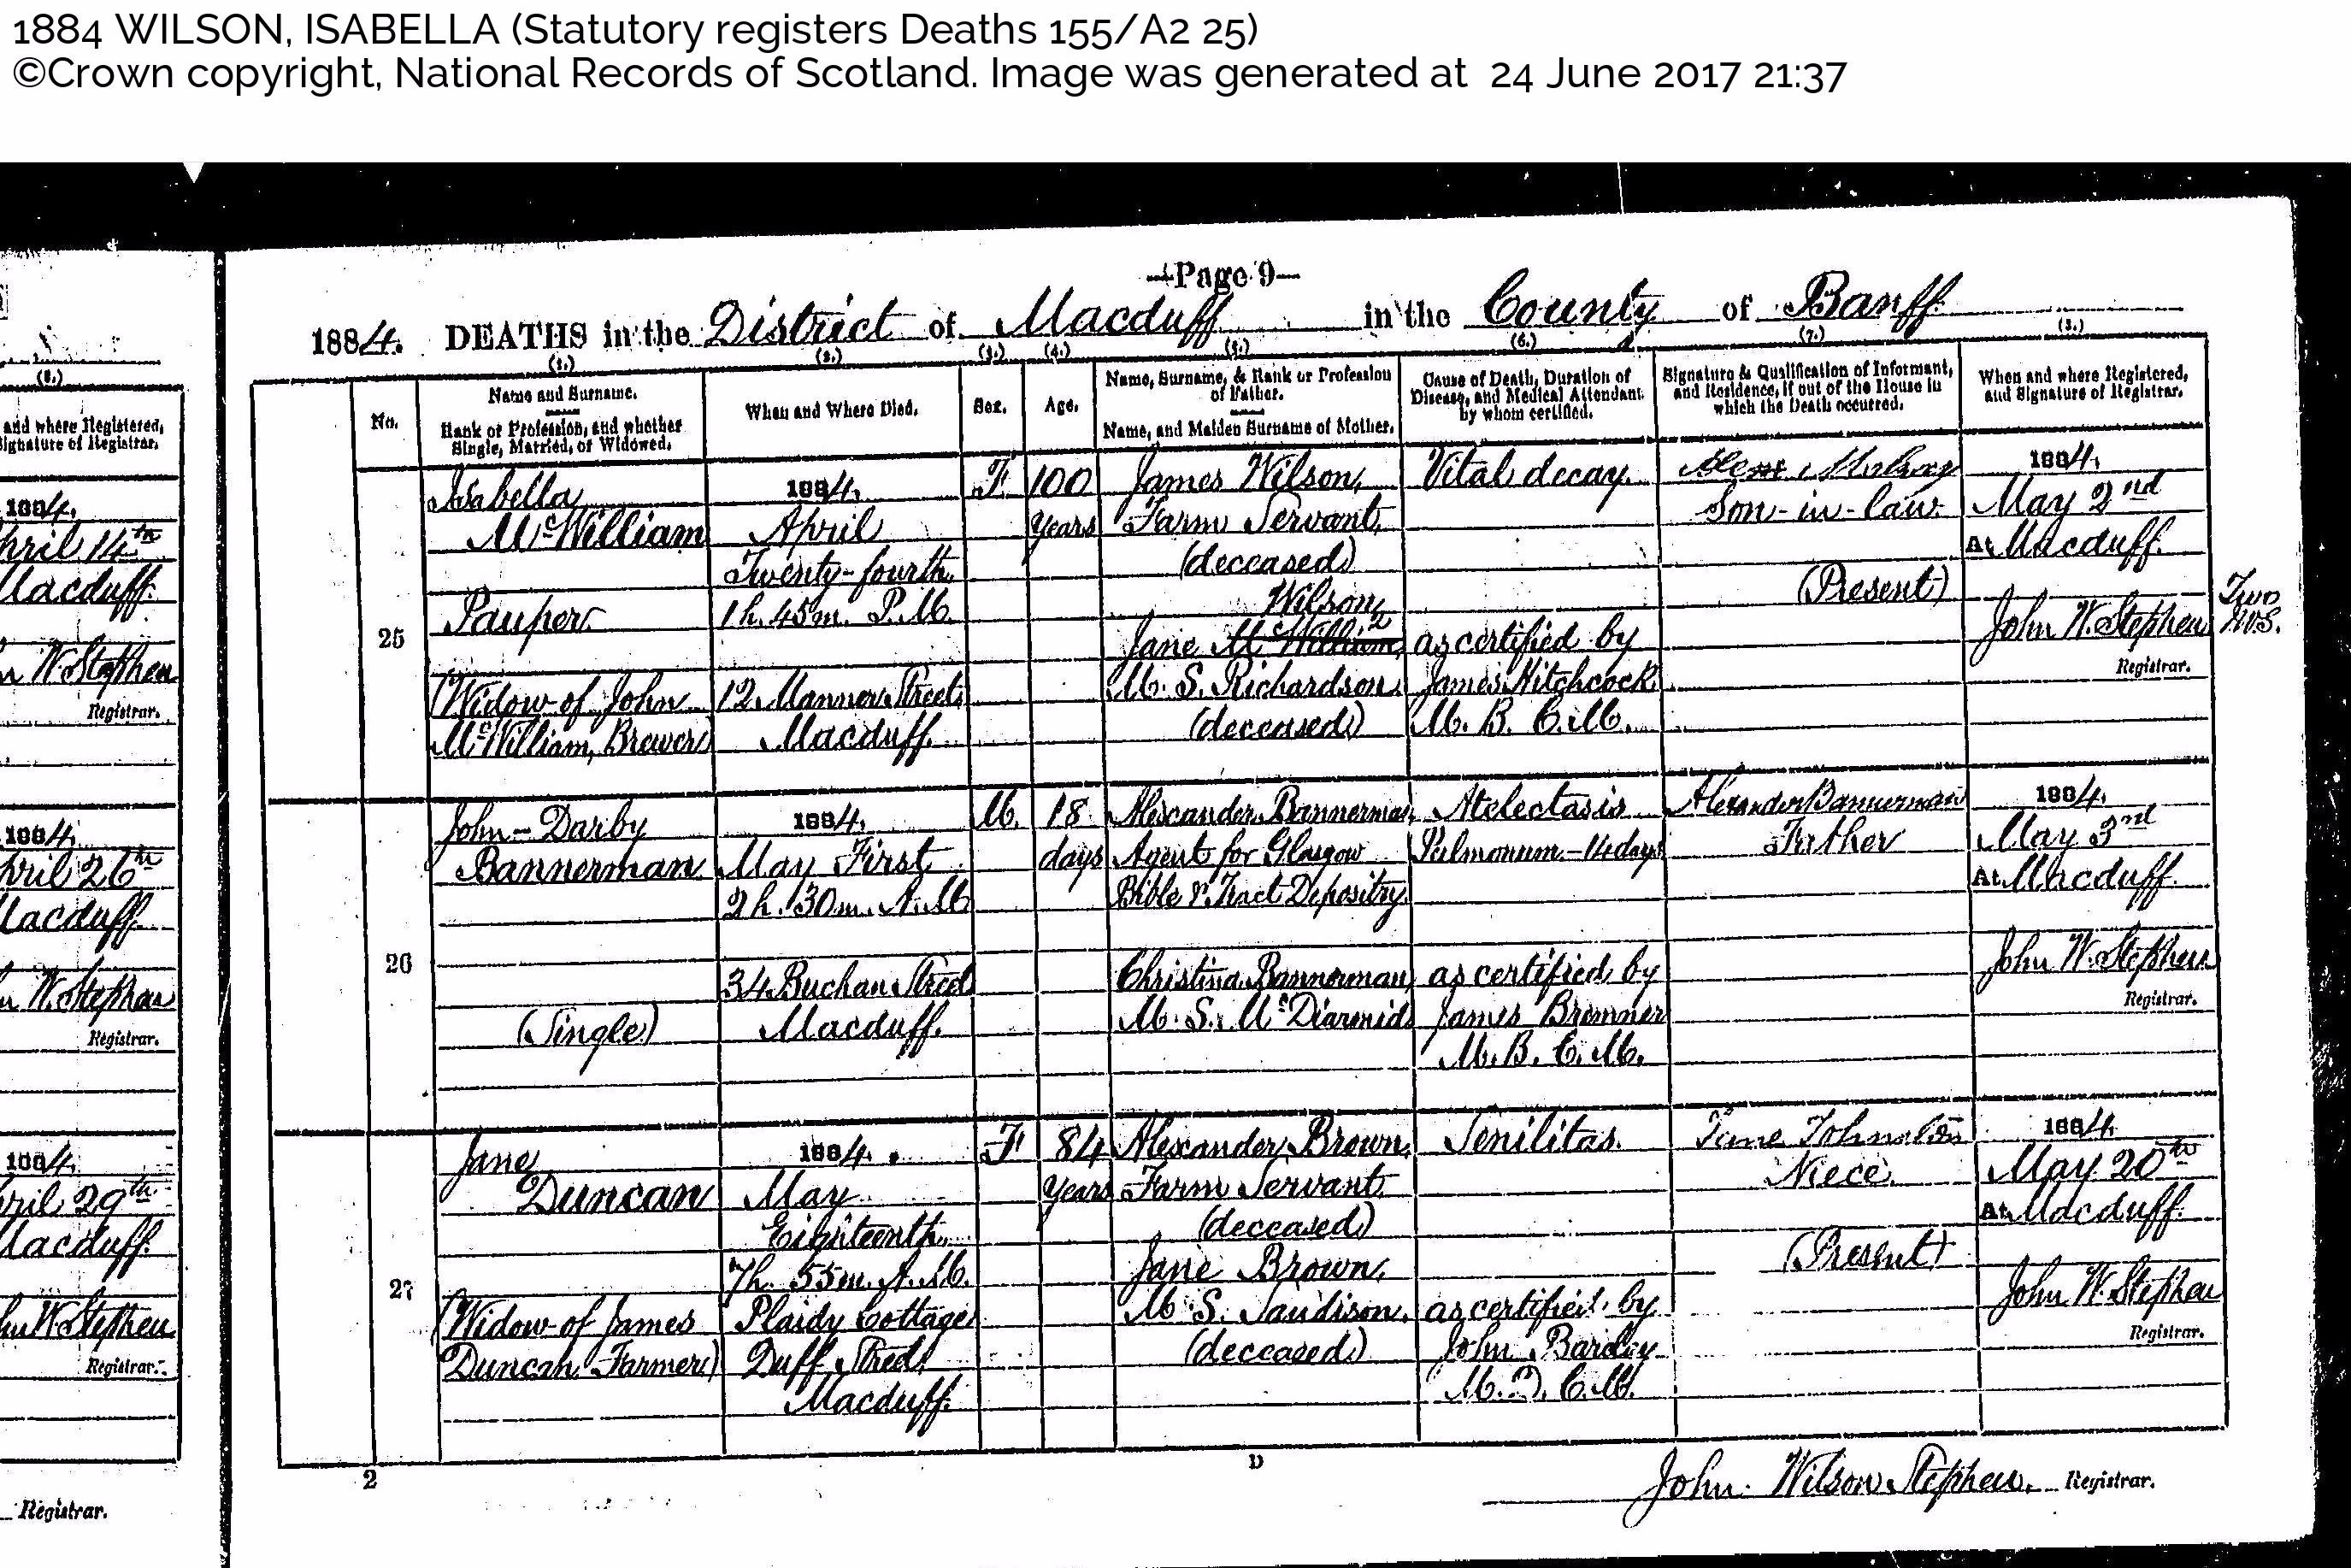 1884 WILSON, ISABELLA (Statutory registers Deaths 155/A2 25)
©Crown copyright, National Records of Scotland. Image was generated at 24 June 2017 21:37
Page 9
1884. DEATHS in the District of Macduff in the County of Banff
(1.) (2.) (3.) (4.) (5.) (6.) (7.) (8.)
No.
Name and Surname.
Rank or Profession, and whether
Single, Married, or Widowed.
When and Where Died.
Sex.
Age.
Name, Surname, & Rank or Profession
of Father.
Name, and Maiden Surname of Mother.
Cause of Death, Duration of
Disease, and Medical Attendant
by whom certified.
Signature & Qualification of Informant,
and Residence, if out of the House in
which the Death occurred.
When and where Registered,
and Signature of Registrar.
25
Isabella
McWilliam
Pauper
(Widow of John
McWilliam, Brewer)
1884.
April
Twenty-fourth
1 h. 45 m. P.M.
12 Manner Street
Macduff.
F.
100
years
James Wilson,
Farm Servant
(deceased)
Wilson,
Jane McWilliam,
M. S. Richardson
(deceased)
Vital decay.
as certified by
James Hitchcock
M. B. C. M.
Son-in-law.
(Present)
1884.
May 2nd
At Macduff.
John W. Stephen
Registrar.
Two
W.S.
26
John-Darby
Bannerman
(Single)
1884.
May First
2 h. 30 m. A.M.
34 Buchan Street
Macduff.
M.
18
days
Alexander Bannerman,
Agent for Glasgow
Bible & Tract Depositry.
Christina Bannerman,
M. S. McDiarmid
Atelectasis
Pulmonum - 14 days
as certified by
James Bremner
M. B. C. M.
Alexander Bannerman
Father
1884.
May 3rd
At Macduff.
John W. Stephen
Registrar.
27
Jane
Duncan
(Widow of James
Duncan Farmer)
1884.
May
Eighteenth
7 h. 55 m. A.M.
Plaidy Cottage
Duff Street
Macduff.
F
84
years
Alexander Brown,
Farm Servant
(deceased)
Jane Brown,
M. S. Sandison.
(deceased)
Senilitas.
as certified by
John Barclay
M. D. C. M.
Jane Johnston
Niece
(Present)
1884.
May 20th
At Macduff.
John W. Stephen
Registrar.
2
D
John Wilson Stephen, Registrar.